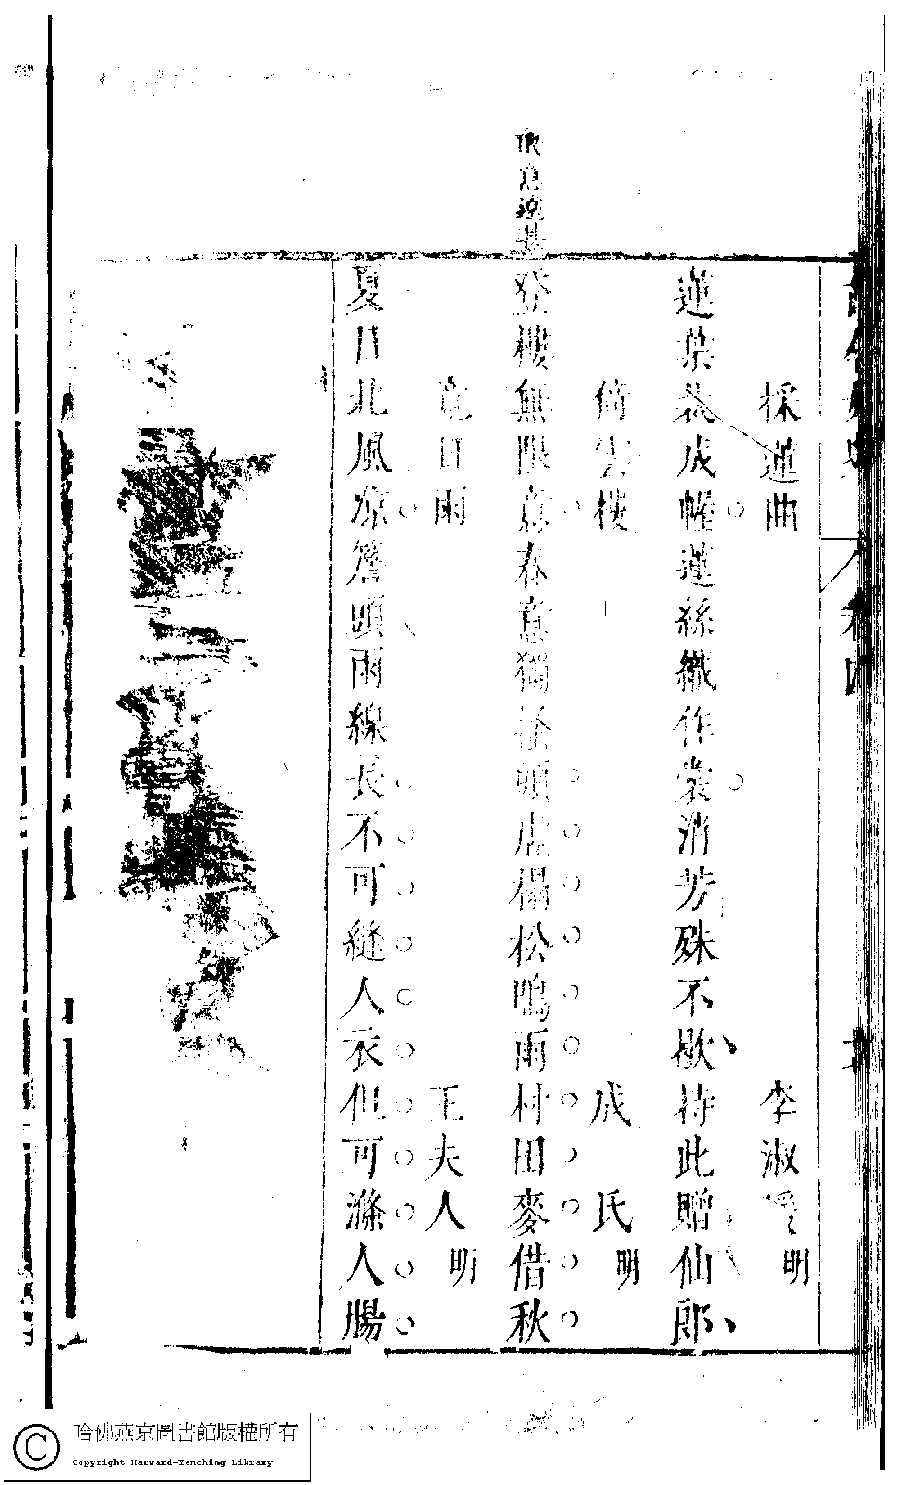 採蓮曲
李淑媛明
蓮葉裁成幄蓮絲織作裳消芳殊不歇持此贈仙郎
倚雲樓
成氏明
取意邃甚
登樓無限意春意獨頭虛榻松鳴雨村田麥借秋
夏日雨
王夫人明
夏日北風凉簷頭雨線長不可縫人衣但可滌人腸
哈佛燕京圖書館版權所有
Copyright Harvard-Yenching Library